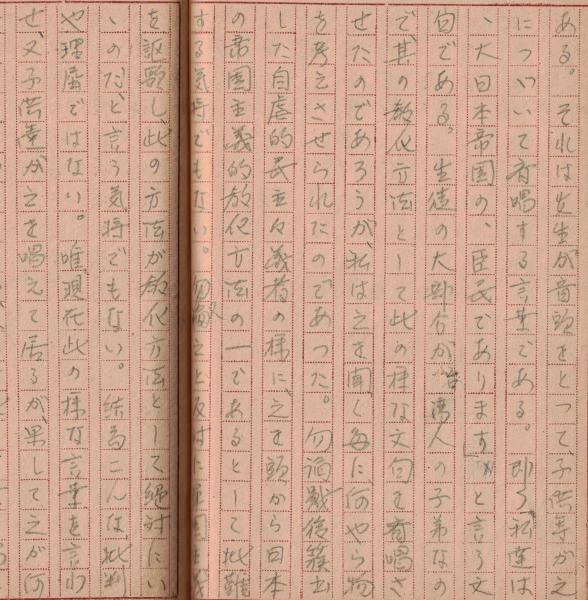 ある。それは先生が音頭をとつて、子供等が之
について斉唱する言葉である。即ち「私達は
、大日本帝国の、臣民であります」と言う文
句である。生徒の大部分が台湾人の子弟なの
で、其の教化方法として此の様な文句を斉唱さ
せたのであろうが、私は之を聞く毎に、何やら物
を考えさせられたのであつた。勿論戦後簇出
した自虐的民主々義者の様に、之を頭から日本
の帝国主義的教化方法の一であるとして批難
する気持でもない。勿論之と反対に
を謳歌し、此の方法が教化方法として絶対にい
いのだと言う気持でもない。結局こんな批判
や理屈ではない。唯、現在此の様な言葉を言わ
せ、又子供達が之を唱えて居るが、果して之が何